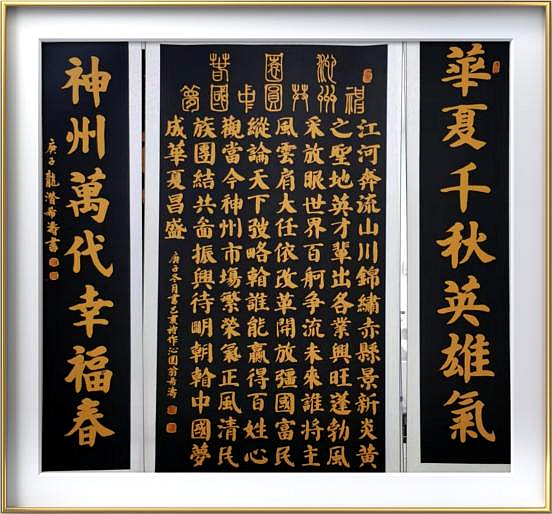 華夏千秋英雄氣
沁園春
神州共圓中國夢
江河奔流山川錦繡赤縣景新炎黃
之聖地英才輩出各業興旺蓬勃風
采放眼世界百舸争流未來誰將主
風雲肩大任依改革開放疆國富民
縱論天下略翰誰能贏得百姓心
觀當今神州市塲繁榮氣正風清民
族團結共啚振興待明朝翰中國夢
成華夏昌盛
庚子冬月書己亥作沁園翁希濤
神州萬代幸福春
庚子龍潛希濤書